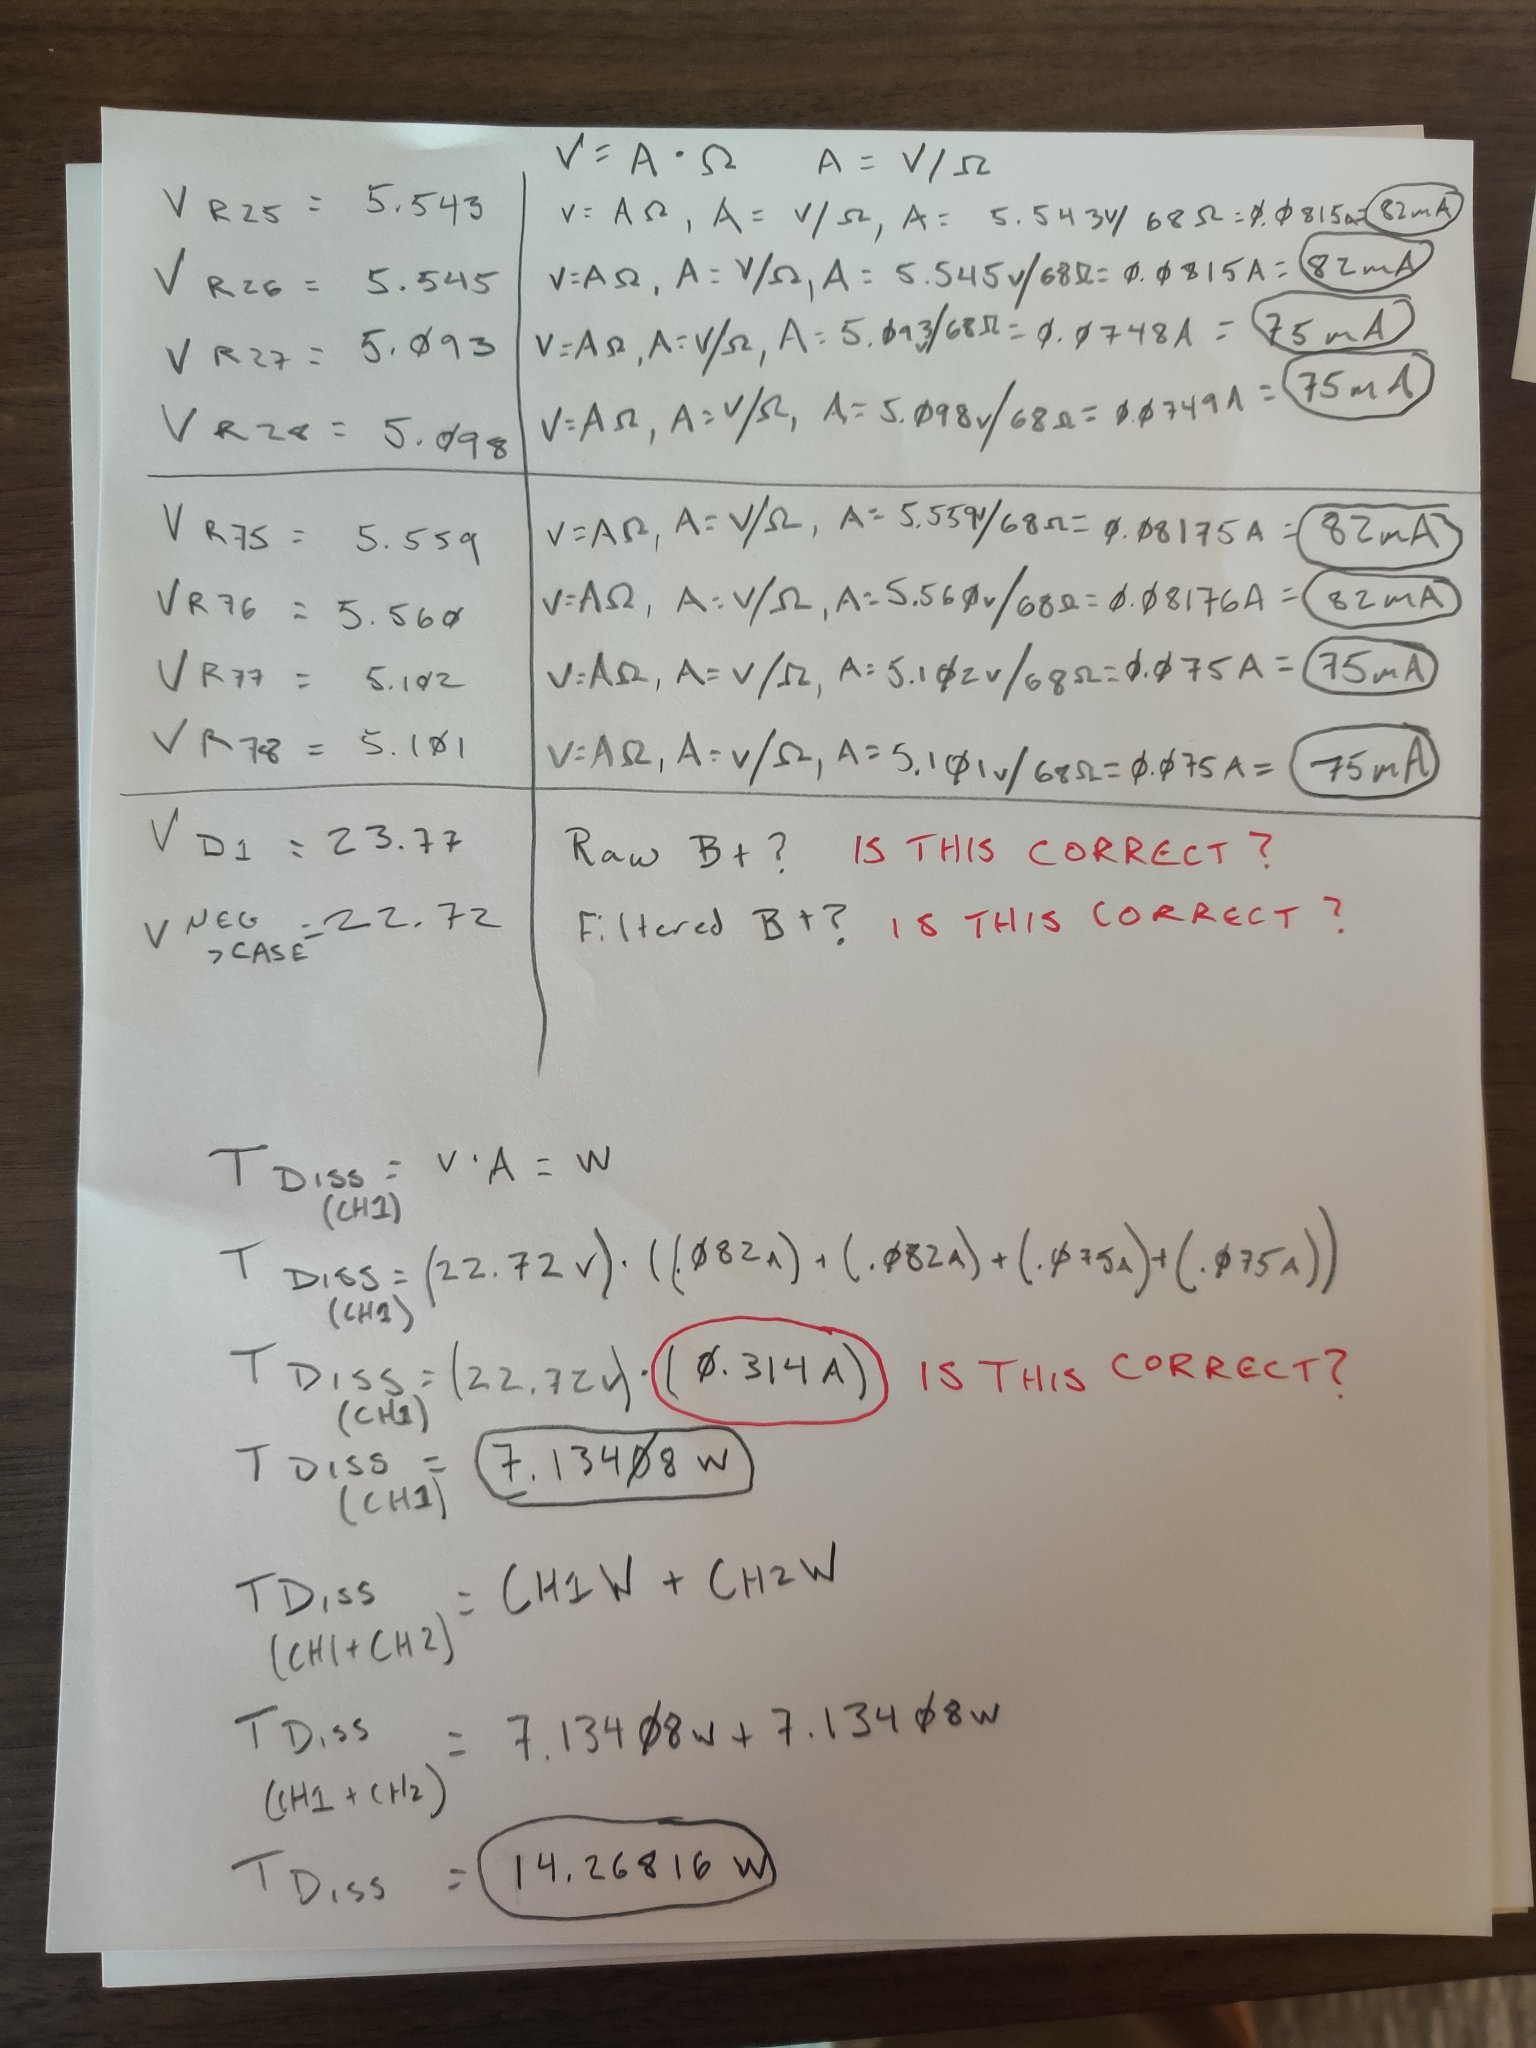 V = A · Ω    A = V/Ω
V R25 = 5.543    V = AΩ, A = V/Ω, A = 5.543V/68Ω = Ø.Ø815A = 82mA
V R26 = 5.545    V=AΩ, A = V/Ω, A = 5.545V/68Ω = Ø.Ø815A = 82mA
V R27 = 5.Ø93    V=AΩ, A=V/Ω, A = 5.Ø93/68Ω = Ø.Ø748A = 75mA
V R28 = 5.Ø98    V=AΩ, A=V/Ω, A= 5.Ø98V/68Ω = Ø.Ø749A = 75mA
V R75 = 5.559    V=AΩ, A=V/Ω, A= 5.559V/68Ω = Ø.Ø8175A = 82mA
V R76 = 5.56Ø    V=AΩ, A=V/Ω, A=5.56ØV/68Ω=Ø.Ø8176A = 82mA
V R77 = 5.1Ø2    V=AΩ, A=V/Ω, A=5.1Ø2V/68Ω=Ø.Ø75A = 75mA
V R78 = 5.1Ø1    V=AΩ, A=V/Ω, A=5.1Ø1V/68Ω=Ø.Ø75A = 75mA
V D1 = 23.77    Raw B+? IS THIS CORRECT?
V NEG >CASE = 22.72    Filtered B+? IS THIS CORRECT?
T Diss (CH1) = V·A = W
T Diss (CH1) = (22.72V)·((.Ø82A)+(.Ø82A)+(.Ø75A)+(.Ø75A))
T Diss (CH1) = (22.72V)·(Ø.314A) IS THIS CORRECT?
T Diss (CH1) = 7.134Ø8W
T Diss (CH1+CH2) = CH1W + CH2W
T Diss (CH1+CH2) = 7.134Ø8W + 7.134Ø8W
T Diss = 14.26816 W